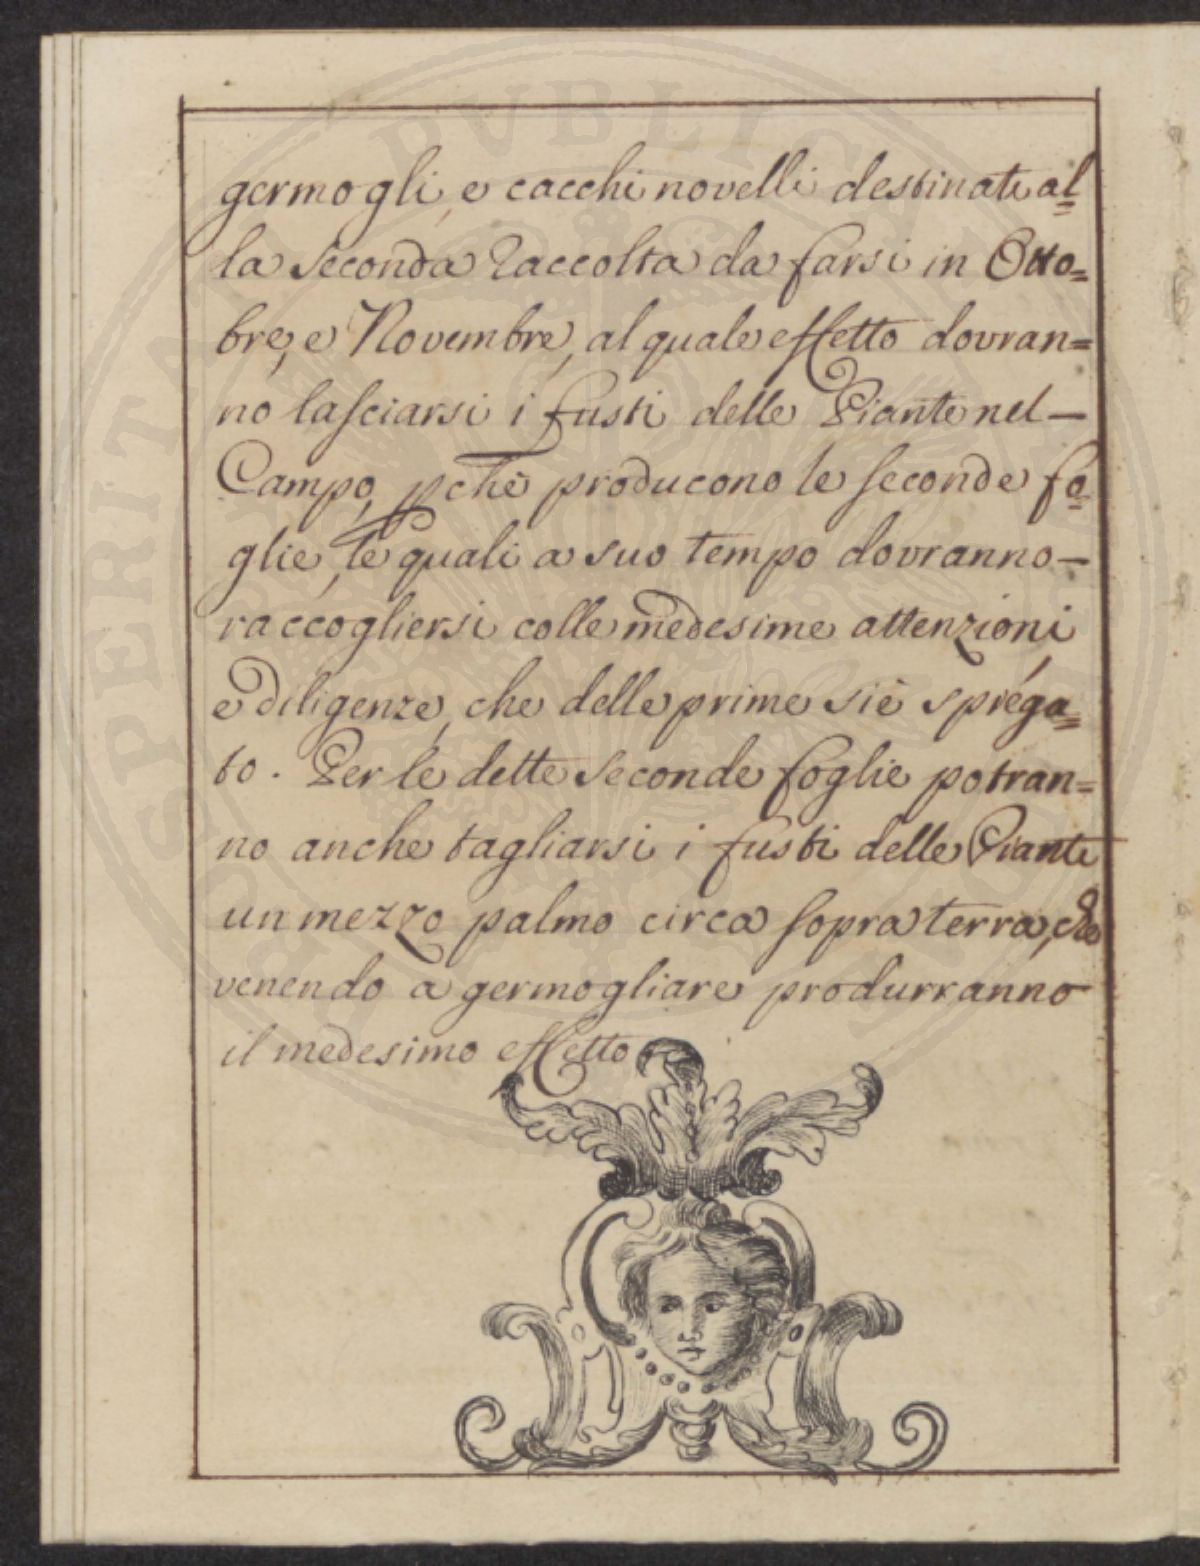 germogli, e cacchi novelli destinati al=
la seconda Raccolta da farsi in Otto=
bre, e Novembre, al quale effetto dovran=
no lasciarsi i fusti delle Piante nel—
Campo, pchè producono le seconde fo=
glie, le quali a suo tempo dovranno—
raccogliersi colle medesime attenzioni
e diligenze, che delle prime siè spiega=
to. Per le dette seconde foglie potran=
no anche tagliarsi i fusti delle Piante
un mezzo palmo circa sopra terra, che
venendo a germogliare produrranno
il medesimo effetto